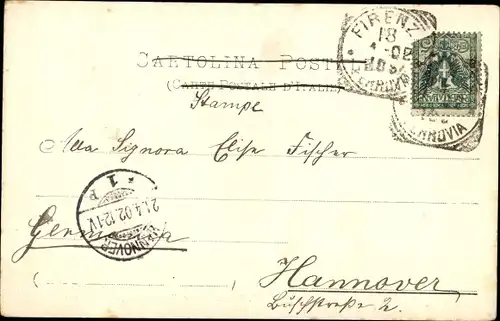 CARTOLINA POSTALE
(CARTE POSTALE D'ITALIE)
FIRENZE
18
4-02
FERROVIA
FERROVIA
Stampe
Alla Signora Elise Fischer
HANNOVER
* 1 P
21.4.02.12-1V
Germania
Hannover
Buschstraße 2.